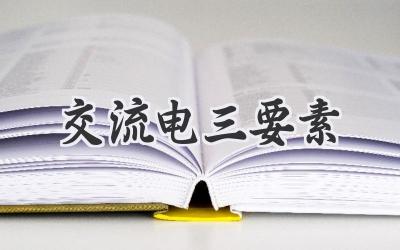 交流电三要素